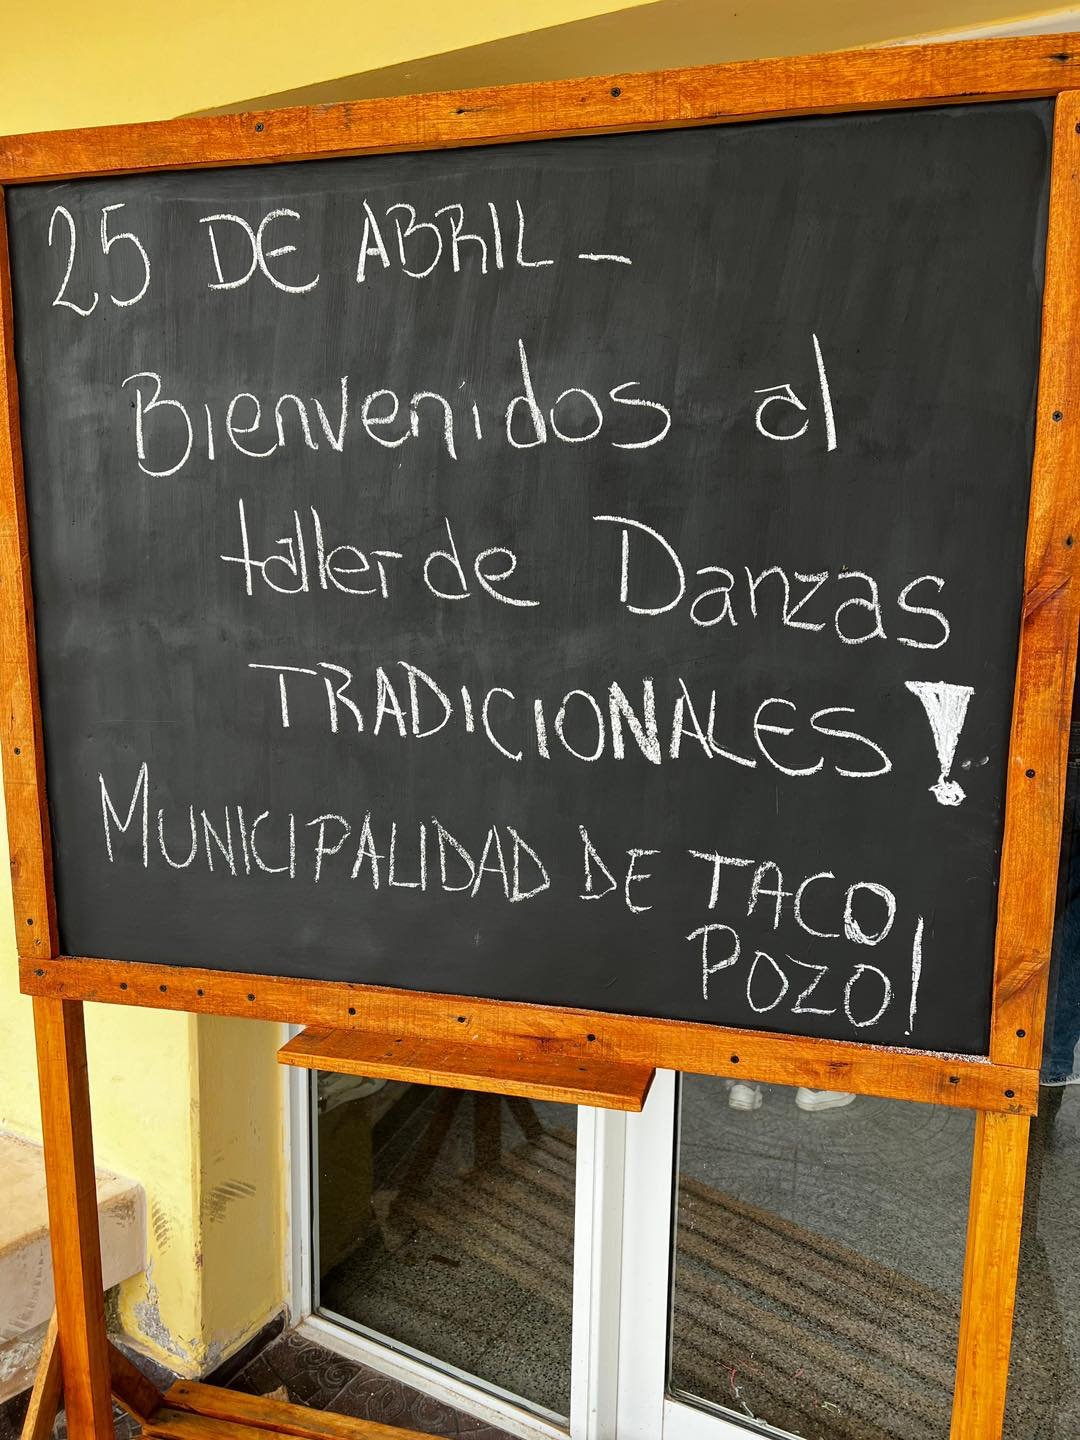 25 DE ABRIL -
Bienvenidos al
taller de Danzas
TRADICIONALES!
MUNICIPALIDAD DE TACO
POZO!